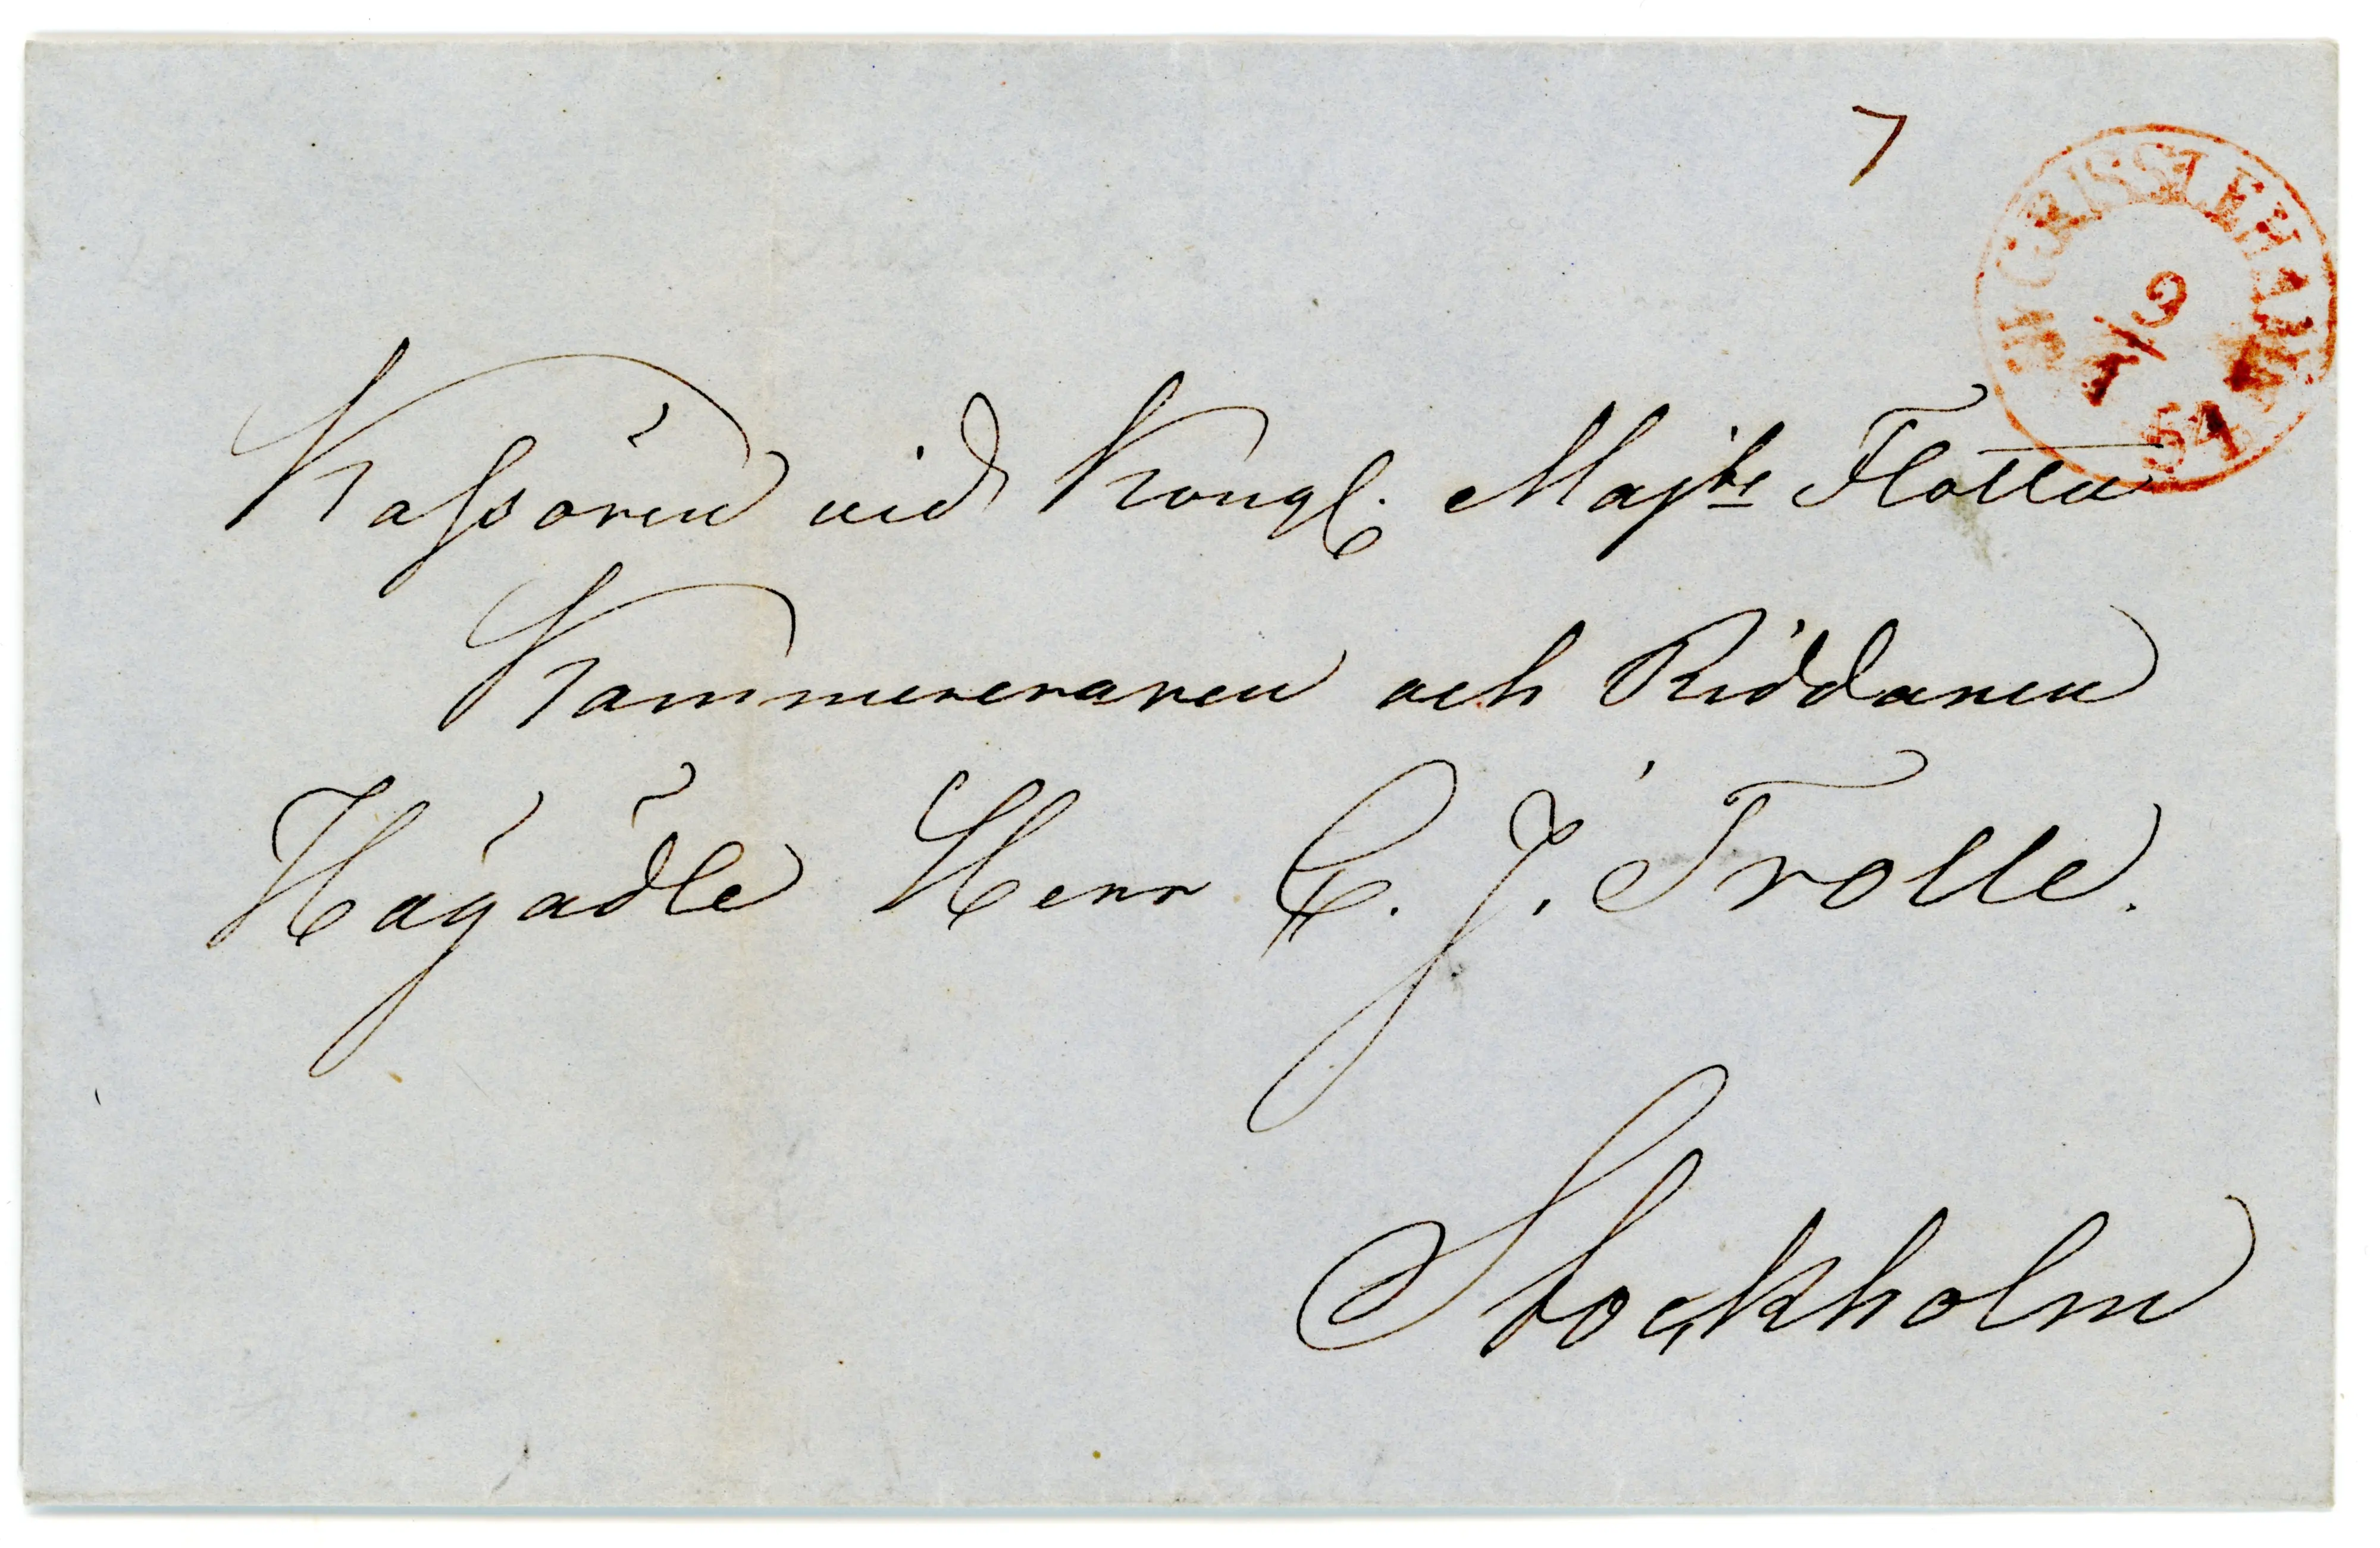 7
GRISSLEHAMN
9
7
54
Kassören vid Kongl. Majts Flotta
Kammereraren och Riddaren
Högädle Herr C. J. Trolle.
Stockholm